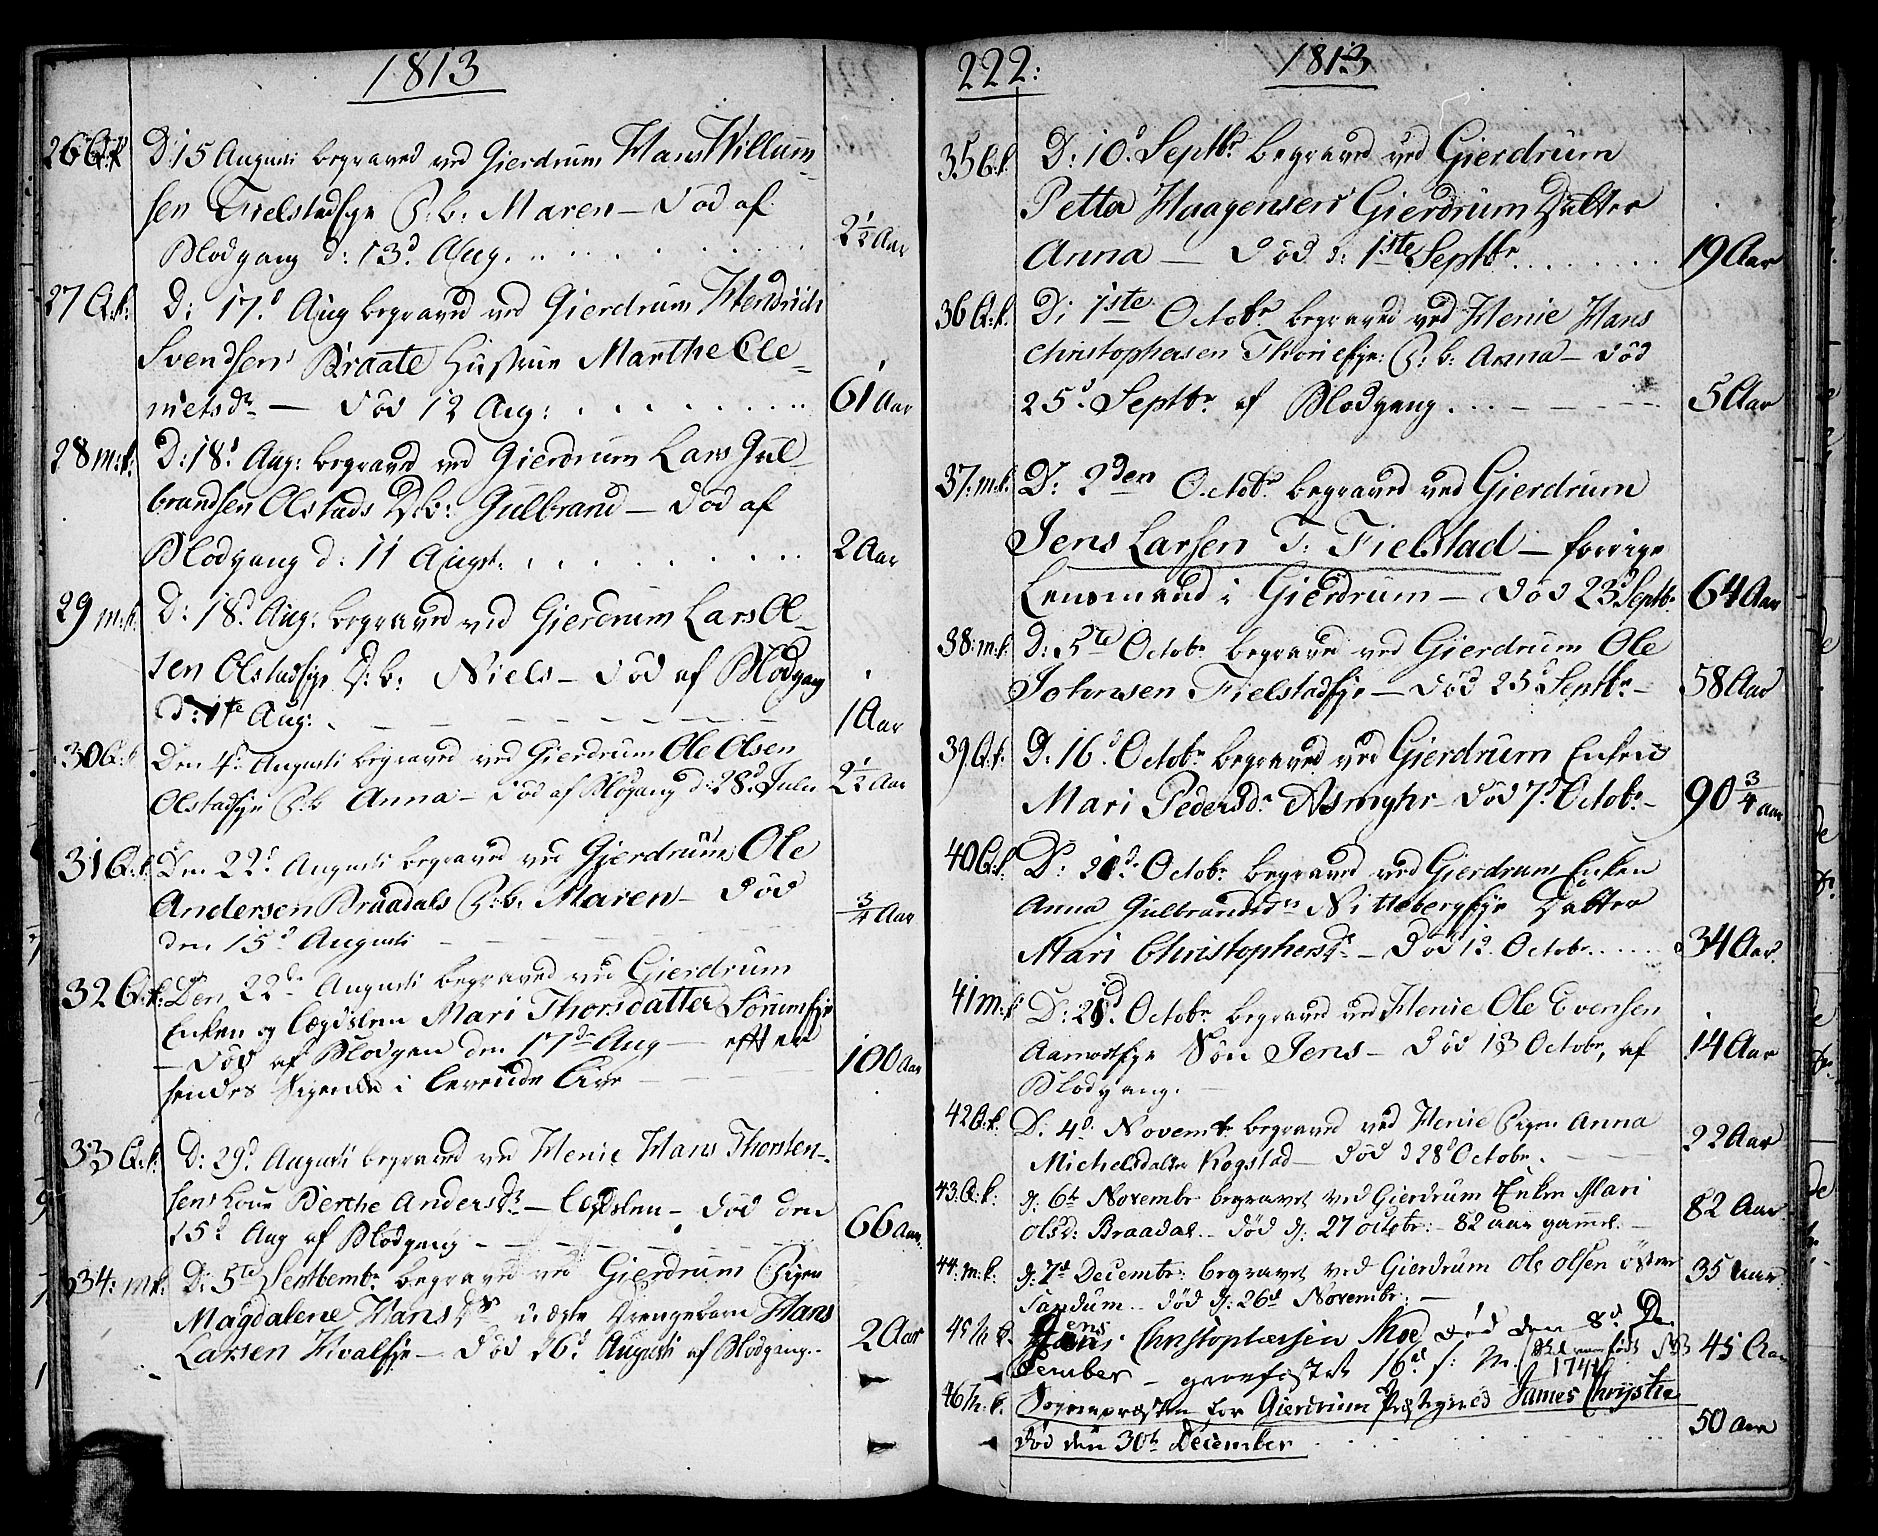 1813
26 Q:k D: 15 Augusti begraved ved Gierdrum Hans Willum-
sen Fielstadeje P: b: Maren — død af
Blodgang d: 13d Aug. 2½ Aar
27 Q:k: D: 17d Aug begraved ved Gierdrum Hendrich
Svendsens Braate Hustrue Marthe Cle-
metsdr — død 12 Aug: 61 Aar
28 m:k: D: 18d Aug: begraved ved Gierdrum Lars Gul-
brandsen Olstads D:b: Gulbrand — død af
Blodgang d: 11 Augst. 2 Aar
29 m:k. D: 18d Aug: begraved ved Gierdrum Lars Ol-
sen Olstadeje D: b: Niels — død af Blodgang
d: 1te Aug: 1 Aar
30 Q:k Den 4de Augusti begraved ved Gierdrum Ole Olsen
Olstadeje P:b Anna — død af Blogang d: 28d Julii 2½ Aar
31 Q:k: Den 22d Augusti begraved ved Gierdrum Ole
Andersen Braadals P:b. Maren — død
den 15d Augusti ¾ Aar
32 Q:k: Den 22de Augusti begraved ved Gierdrum
Enken og Lægdslem Mari Thorsdatter Sørumeje
— død af Blodgan den 17de Aug — efter
hendes Sigende i levende Live 100 Aar
33 Q:k: D: 29d Augusti begraved ved Henie Hans Thorsten-
sens Kone Berthe Andersdr — Lægdslem — død den
15d Aug af Blodgang 66 Aar.
34: mk: D: 5te Septembr begraved ved Gierdrum Pigen
Magdalene Hansdrs uægte Drengebarn Hans
Larsen Kvalseje — død 26d Augusti af Blodgang. 2 Aar
222: 1813
35 Q:k. D: 10d Septbr begraved ved Gierdrum
Petter Haagensens Gierdrum Datter
Anna — død d: 1ste Septbr 19 Aar
36 Q:k. D: 1ste Octobr begraved ved Henie Hans
Christophersen Thonieje: P: b: Anna — død
25d Septbr af Blodgang 5 Aar
37. m.k: D: 2den Octobr begraved ved Gierdrum
Jens Larsen T: Fielstad — forrige
Lensmand i Gierdrum — død 23d Septbr 64 Aar
38: m:k D: 5te Octobr begraved ved Gierdrum Ole
Johnsen Fielstadeje — død 25d Septbr — 58 Aar
39 Q:k: D: 16d Octobr begraved ved Gierdrum Enken
Mari Pedersdr Asmyhr — død 7d Octobr — 90 ¾ aar
40 Q:k: D: 21de Octobr begraved ved Gierdrum Enken
Anna Gulbrandsdrs Nittebergeje Datter
Mari Christophersdr — død 12 Octobr 34 Aar.
41 m:k D: 21d Octobr begraved ved Henie Ole Evensen
Aamodteje Søn Jens — død 13 Octobr, af
Blodgang. 14 Aar
42 Q:k. D: 4d Novembr begraved ved Henie Pigen Anna
Michelsdatter Kogstad — død d 28d Octobr. 22 Aar
43. Q:k: d: 6te Novembr begravet ved Gierdrum Enken Mari
Olsd: Braadal — død d: 27 octobr: — 82 aar gammel — 82 Aar
44: m:k: d: 7d Decembr: begravet ved Gierdrum Ole Olsen øster
Sandum — død d: 26d Novembr: — 35 Aar
45 M. k. Jens Christophersen Moe død den 8d De
cember — 16d s: M. 1741 45 Aar
46 M:k: Sognepræsten for Gierdrum Præstegield James Chrystie
død den 30te December 50 aar